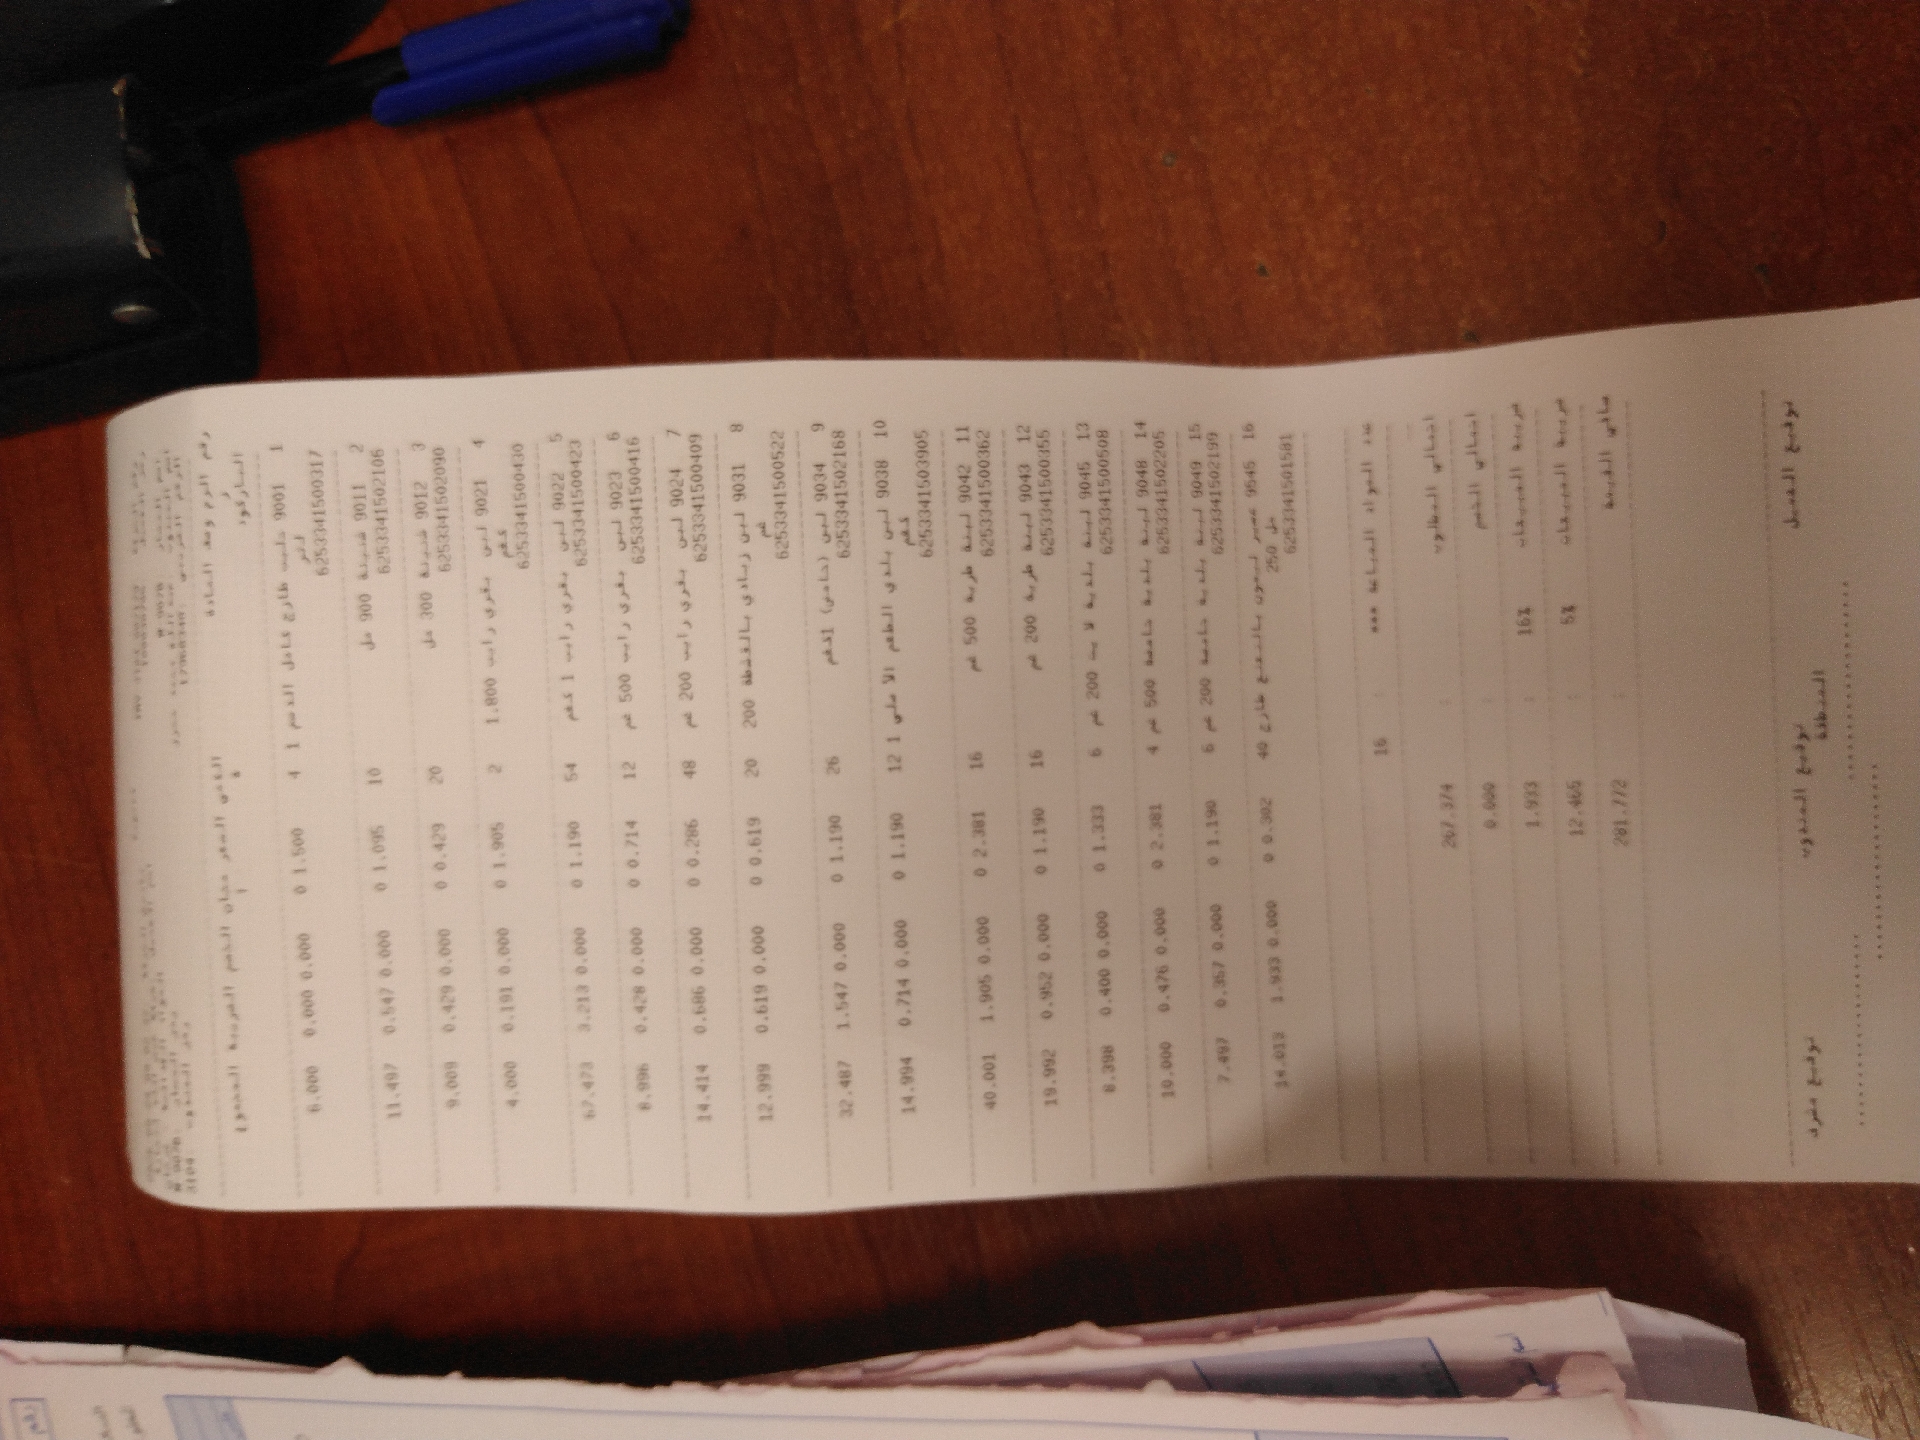 رقم الرمز وصف المادة الكمية السعر مجان الخصم الضريبة المجموع
الباركود
1 9001 حليب طازج كامل الدسم 1 4 1.500 0 0.000 0.000 6.000
لتر
6253341500317
2 9011 شنينة 900 مل 10 1.095 0 0.000 0.547 11.497
6253341502106
3 9012 شنينة 300 مل 20 0.429 0 0.000 0.429 9.009
6253341502090
4 9021 لبن بقري رايب 1.800 2 1.905 0 0.000 0.191 4.000
كغم
6253341500430
5 9022 لبن بقري رايب 1 كغم 54 1.190 0 0.000 3.213 67.473
6253341500423
6 9023 لبن بقري رايب 500 غم 12 0.714 0 0.000 0.428 8.996
6253341500416
7 9024 لبن بقري رايب 200 غم 48 0.286 0 0.000 0.686 14.414
6253341500409
8 9031 لبن زبادي بالقشطة 200 20 0.619 0 0.000 0.619 12.999
غم
6253341500522
9 9034 لبن (حامض) 1كغم 26 1.190 0 0.000 1.547 32.487
6253341502168
10 9038 لبن بلدي الطعم الاصلي 1 12 1.190 0 0.000 0.714 14.994
كغم
6253341503905
11 9042 لبنة طرية 500 غم 16 2.381 0 0.000 1.905 40.001
6253341500362
12 9043 لبنة طرية 200 غم 16 1.190 0 0.000 0.952 19.992
6253341500355
13 9045 لبنة بلدية لايت 200 غم 6 1.333 0 0.000 0.400 8.398
6253341500508
14 9048 لبنة بلدية حامضة 500 غم 4 2.381 0 0.000 0.476 10.000
6253341502205
15 9049 لبنة بلدية حامضة 200 غم 6 1.190 0 0.000 0.357 7.497
6253341502199
16 9545 عصير ليمون بالنعنع طازج 40 0.302 0 0.000 1.933 14.013
250 مل
6253341501581
عدد المواد المباعة *** 16
اجمالي المطلوب : 267.374
اجمالي الخصم : 0.000
ضريبة المبيعات 16% : 1.933
ضريبة المبيعات 5% : 12.465
صافي القيمة : 281.772
توقيع العميل توقيع المندوب توقيع مشرف
المنطقة